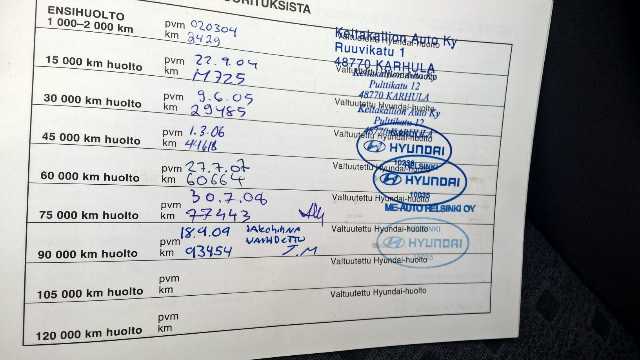 ORITUKSISTA
ENSIHUOLTO
1 000–2 000 km
pvm 020304
km 2429
Valtuutettu Hyundai-huolto
Keltakallion Auto Ky
Ruuvikatu 1
48770 KARHULA
15 000 km huolto
pvm 22.9.04
km 17725
Valtuutettu Hyundai-huolto
Keltakallion Auto Ky
Pulttikatu 12
48770 KARHULA
30 000 km huolto
pvm 9.6.05
km 29485
Valtuutettu Hyundai-huolto
Keltakallion Auto Ky
Pulttikatu 12
48770 KARHULA
45 000 km huolto
pvm 1.3.06
km
Valtuutettu Hyundai-huolto
HYUNDAI
10236
HELSINKI
60 000 km huolto
pvm 27.7.07
km 60664
HYUNDAI
10035
75 000 km huolto
pvm 30.7.08
km 77443
ME-AUTO HELSINKI OY
90 000 km huolto
pvm 18.9.09 JAKOHIHNA
VAIHDETTU
km 93454 J.M
HYUNDAI
Valtuutettu Hyundai-huolto
105 000 km huolto
pvm
km
Valtuutettu Hyundai-huolto
120 000 km huolto
pvm
km